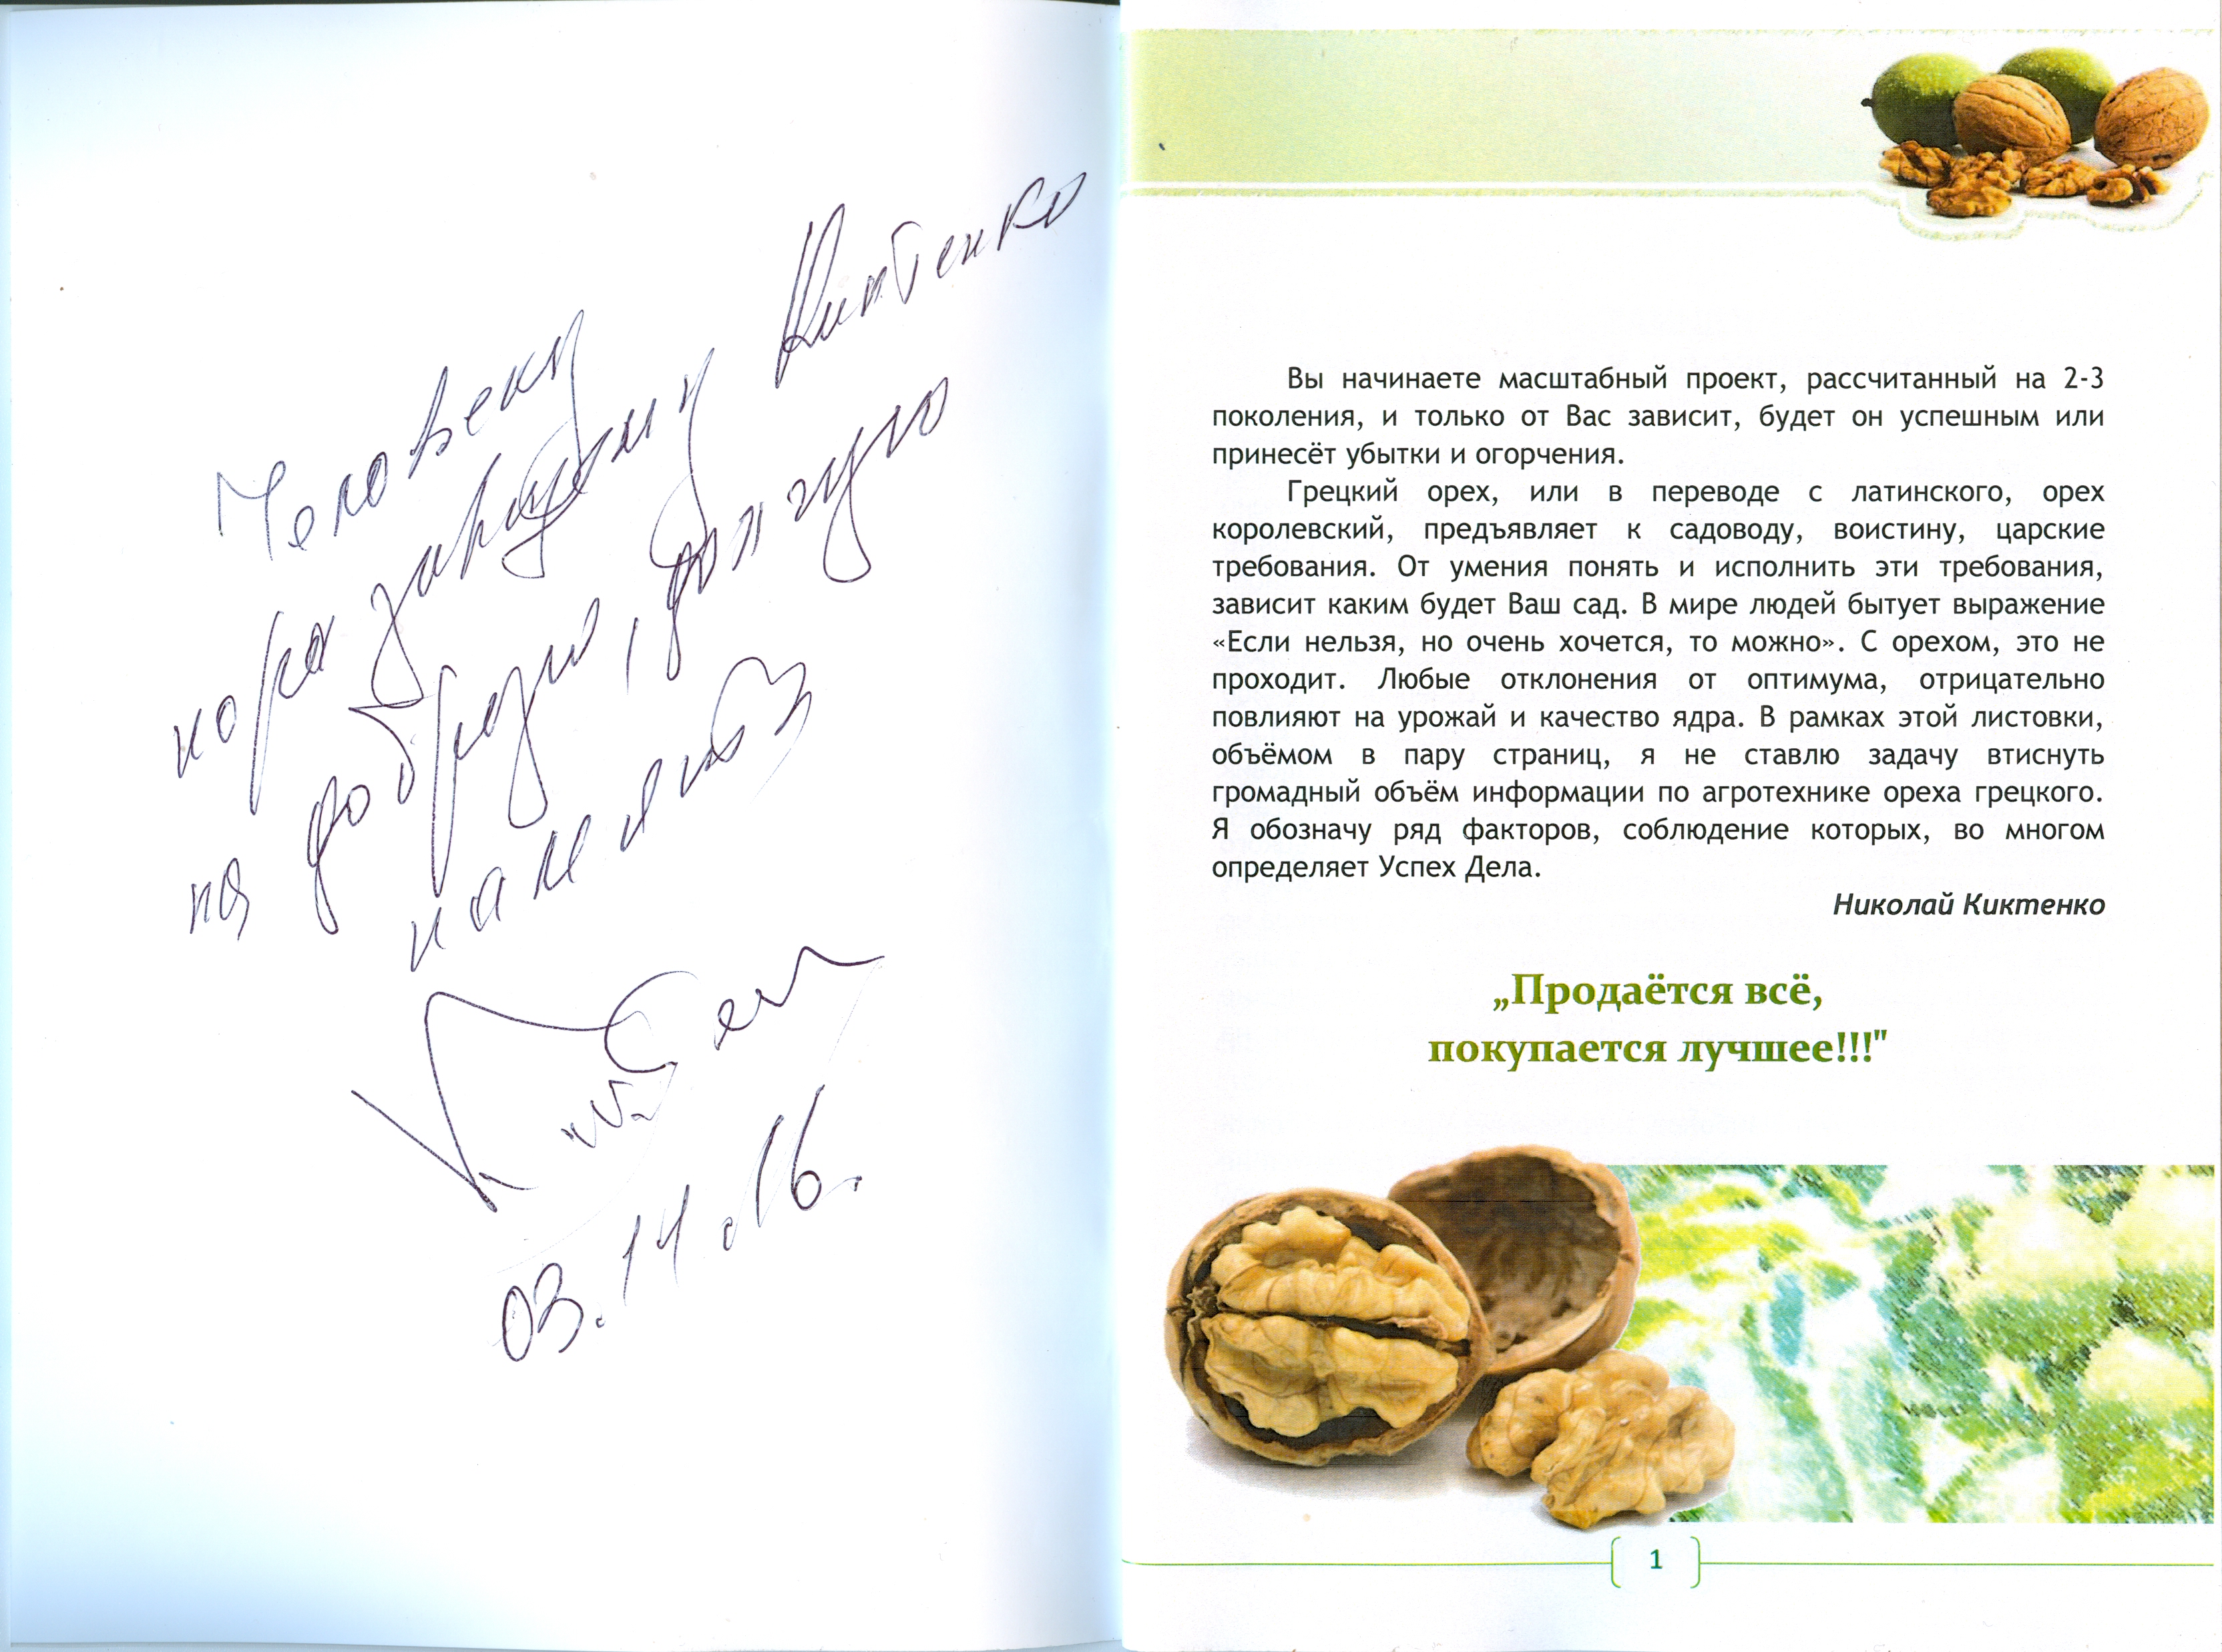 Человеку
поразившему Киктенко
на добрую, долгую
память
03.11.16.
Вы начинаете масштабный проект, рассчитанный на 2-3
поколения, и только от Вас зависит, будет он успешным или
принесёт убытки и огорчения.
Грецкий орех, или в переводе с латинского, орех
королевский, предъявляет к садоводу, воистину, царские
требования. От умения понять и исполнить эти требования,
зависит каким будет Ваш сад. В мире людей бытует выражение
«Если нельзя, но очень хочется, то можно». С орехом, это не
проходит. Любые отклонения от оптимума, отрицательно
повлияют на урожай и качество ядра. В рамках этой листовки,
объёмом в пару страниц, я не ставлю задачу втиснуть
громадный объём информации по агротехнике ореха грецкого.
Я обозначу ряд факторов, соблюдение которых, во многом
определяет Успех Дела.
Николай Киктенко
„Продаётся всё,
покупается лучшее!!!"
1